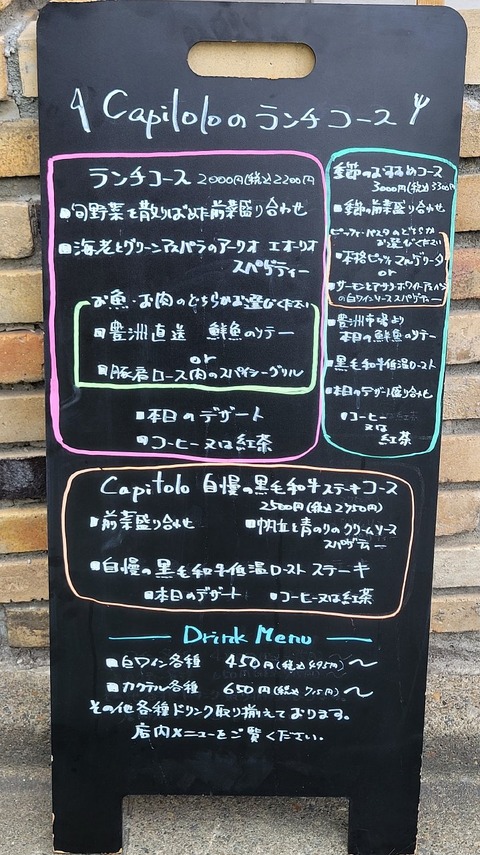 Capitoloのランチコース
ランチコース 2000円(税込)2200円
■旬野菜を散りばめた前菜盛り合わせ
■海老とグリーンアスパラのアーリオ エオーリオ
スパゲティー
お魚・お肉のどちらかお選びください
■豊洲直送 鮮魚のソテー
or
■豚肩ロース肉のスパイシーグリル
■本日のデザート
■コーヒー又は紅茶
のおすすめコース
3000円(税込)3300円
■の前菜盛り合わせ
ピッツァ・パスタのどちらか
お選びください
■本格ピッツァマルゲリータ
or
■サーモンとアサリ・ホワイトアスパラ
の白ワインソーススパゲティー
■豊洲市場より
本日の鮮魚のソテー
■黒毛和牛低温ロースト
■本日のデザート盛り合わせ
■コーヒー
又は
紅茶
Capitolo 自慢の黒毛和牛ステーキコース
2500円(税込2750円)
■前菜盛り合せ
■帆立と青のりのクリームソース
スパゲティー
■自慢の黒毛和牛低温ロースト ステーキ
■本日のデザート ■コーヒー又は紅茶
Drink Menu
■白ワイン各種 450円(税込495円)〜
■カクテル各種 650円(税込715円)〜
その他各種ドリンク取り揃えております。
店内メニューをご覧ください。